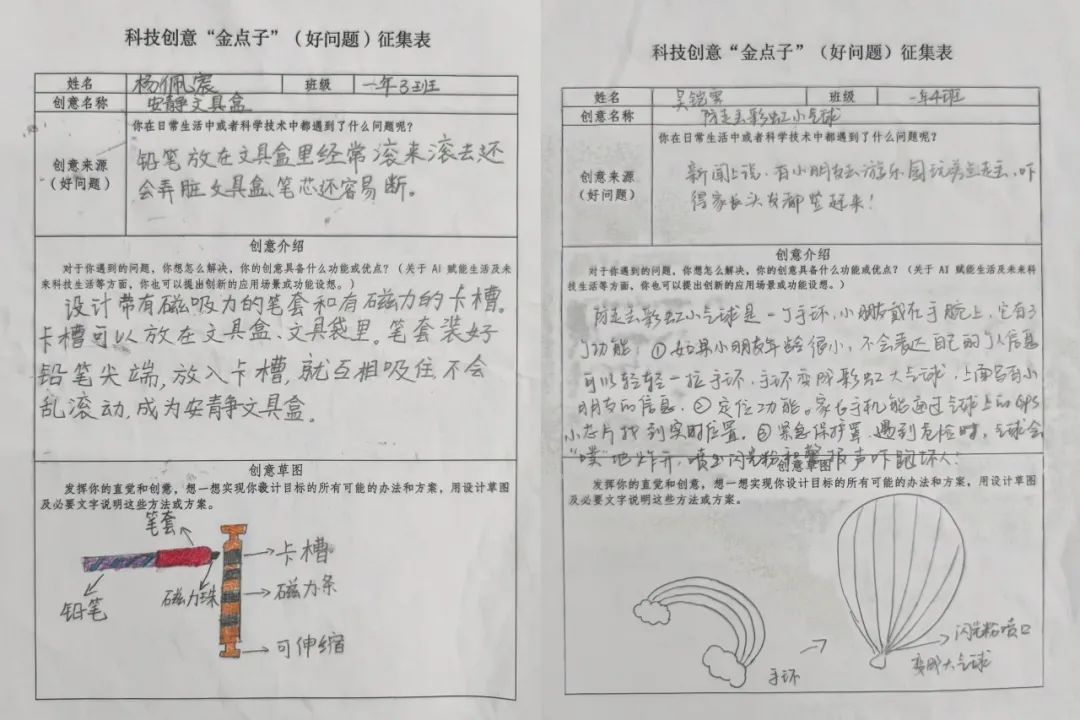 科技创意“金点子”（好问题）征集表
姓名 杨佩宸 班级 一年3班
创意名称 安静文具盒
创意来源（好问题）
你在日常生活中或者科学技术中都遇到了什么问题呢？
铅笔放在文具盒里经常滚来滚去还
会弄脏文具盒、笔芯还容易断。
创意介绍
对于你遇到的问题，你想怎么解决，你的创意具备什么功能或优点？（关于 AI 赋能生活及未
来科技生活等方面，你也可以提出创新的应用场景或功能设想。）
设计带有磁吸力的笔套和有磁力的卡槽。
卡槽可以放在文具盒、文具袋里。笔套装好
铅笔尖端，放入卡槽，就互相吸住，不会
乱滚动，成为安静文具盒。
创意草图
发挥你的直觉和创意，想一想实现你设计目标的所有可能的办法和方案，用设计草图
及必要文字说明这些方法或方案。
笔套
铅笔
磁力珠
卡槽
磁力条
可伸缩
科技创意“金点子”（好问题）征集表
姓名 吴 班级 一年4班
创意名称 防走丢彩虹小气球
创意来源（好问题）
你在日常生活中或者科学技术中都遇到了什么问题呢？
新闻上说，有小朋友去游乐园玩差点走丢，吓
得家长头发都竖起来！
创意介绍
对于你遇到的问题，你想怎么解决，你的创意具备什么功能或优点？（关于 AI 赋能生活及未来科
技生活等方面，你也可以提出创新的应用场景或功能设想。）
防走丢彩虹小气球是一个手环，小朋友戴在手腕上，它有3
个功能：①如果小朋友年龄很小，不会表达自己的个人信息
可以轻轻一拉手环，手环变成彩虹大气球，上面写有小
朋友的信息。②定位功能。家长手机能通过气球上的GPS
小芯片找到实时位置。③紧急保护罩，遇到危险时，气球会
“噗”地炸开，喷出闪光粉和警报声吓跑坏人！
创意草图
发挥你的直觉和创意，想一想实现你设计目标的所有可能的办法和方案，用设计草图
及必要文字说明这些方法或方案。
手环
闪光粉喷口
变成大气球